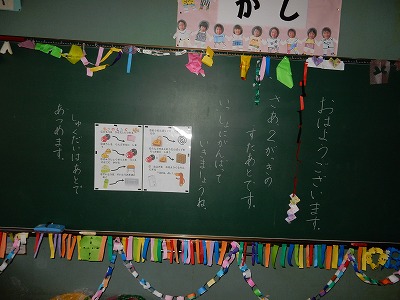 がし
おはようございます。
さあ2がっきの
すたあとです。
いっしょにがんばって
いきましょうね。
しゅくだいはあとで
あつめます。